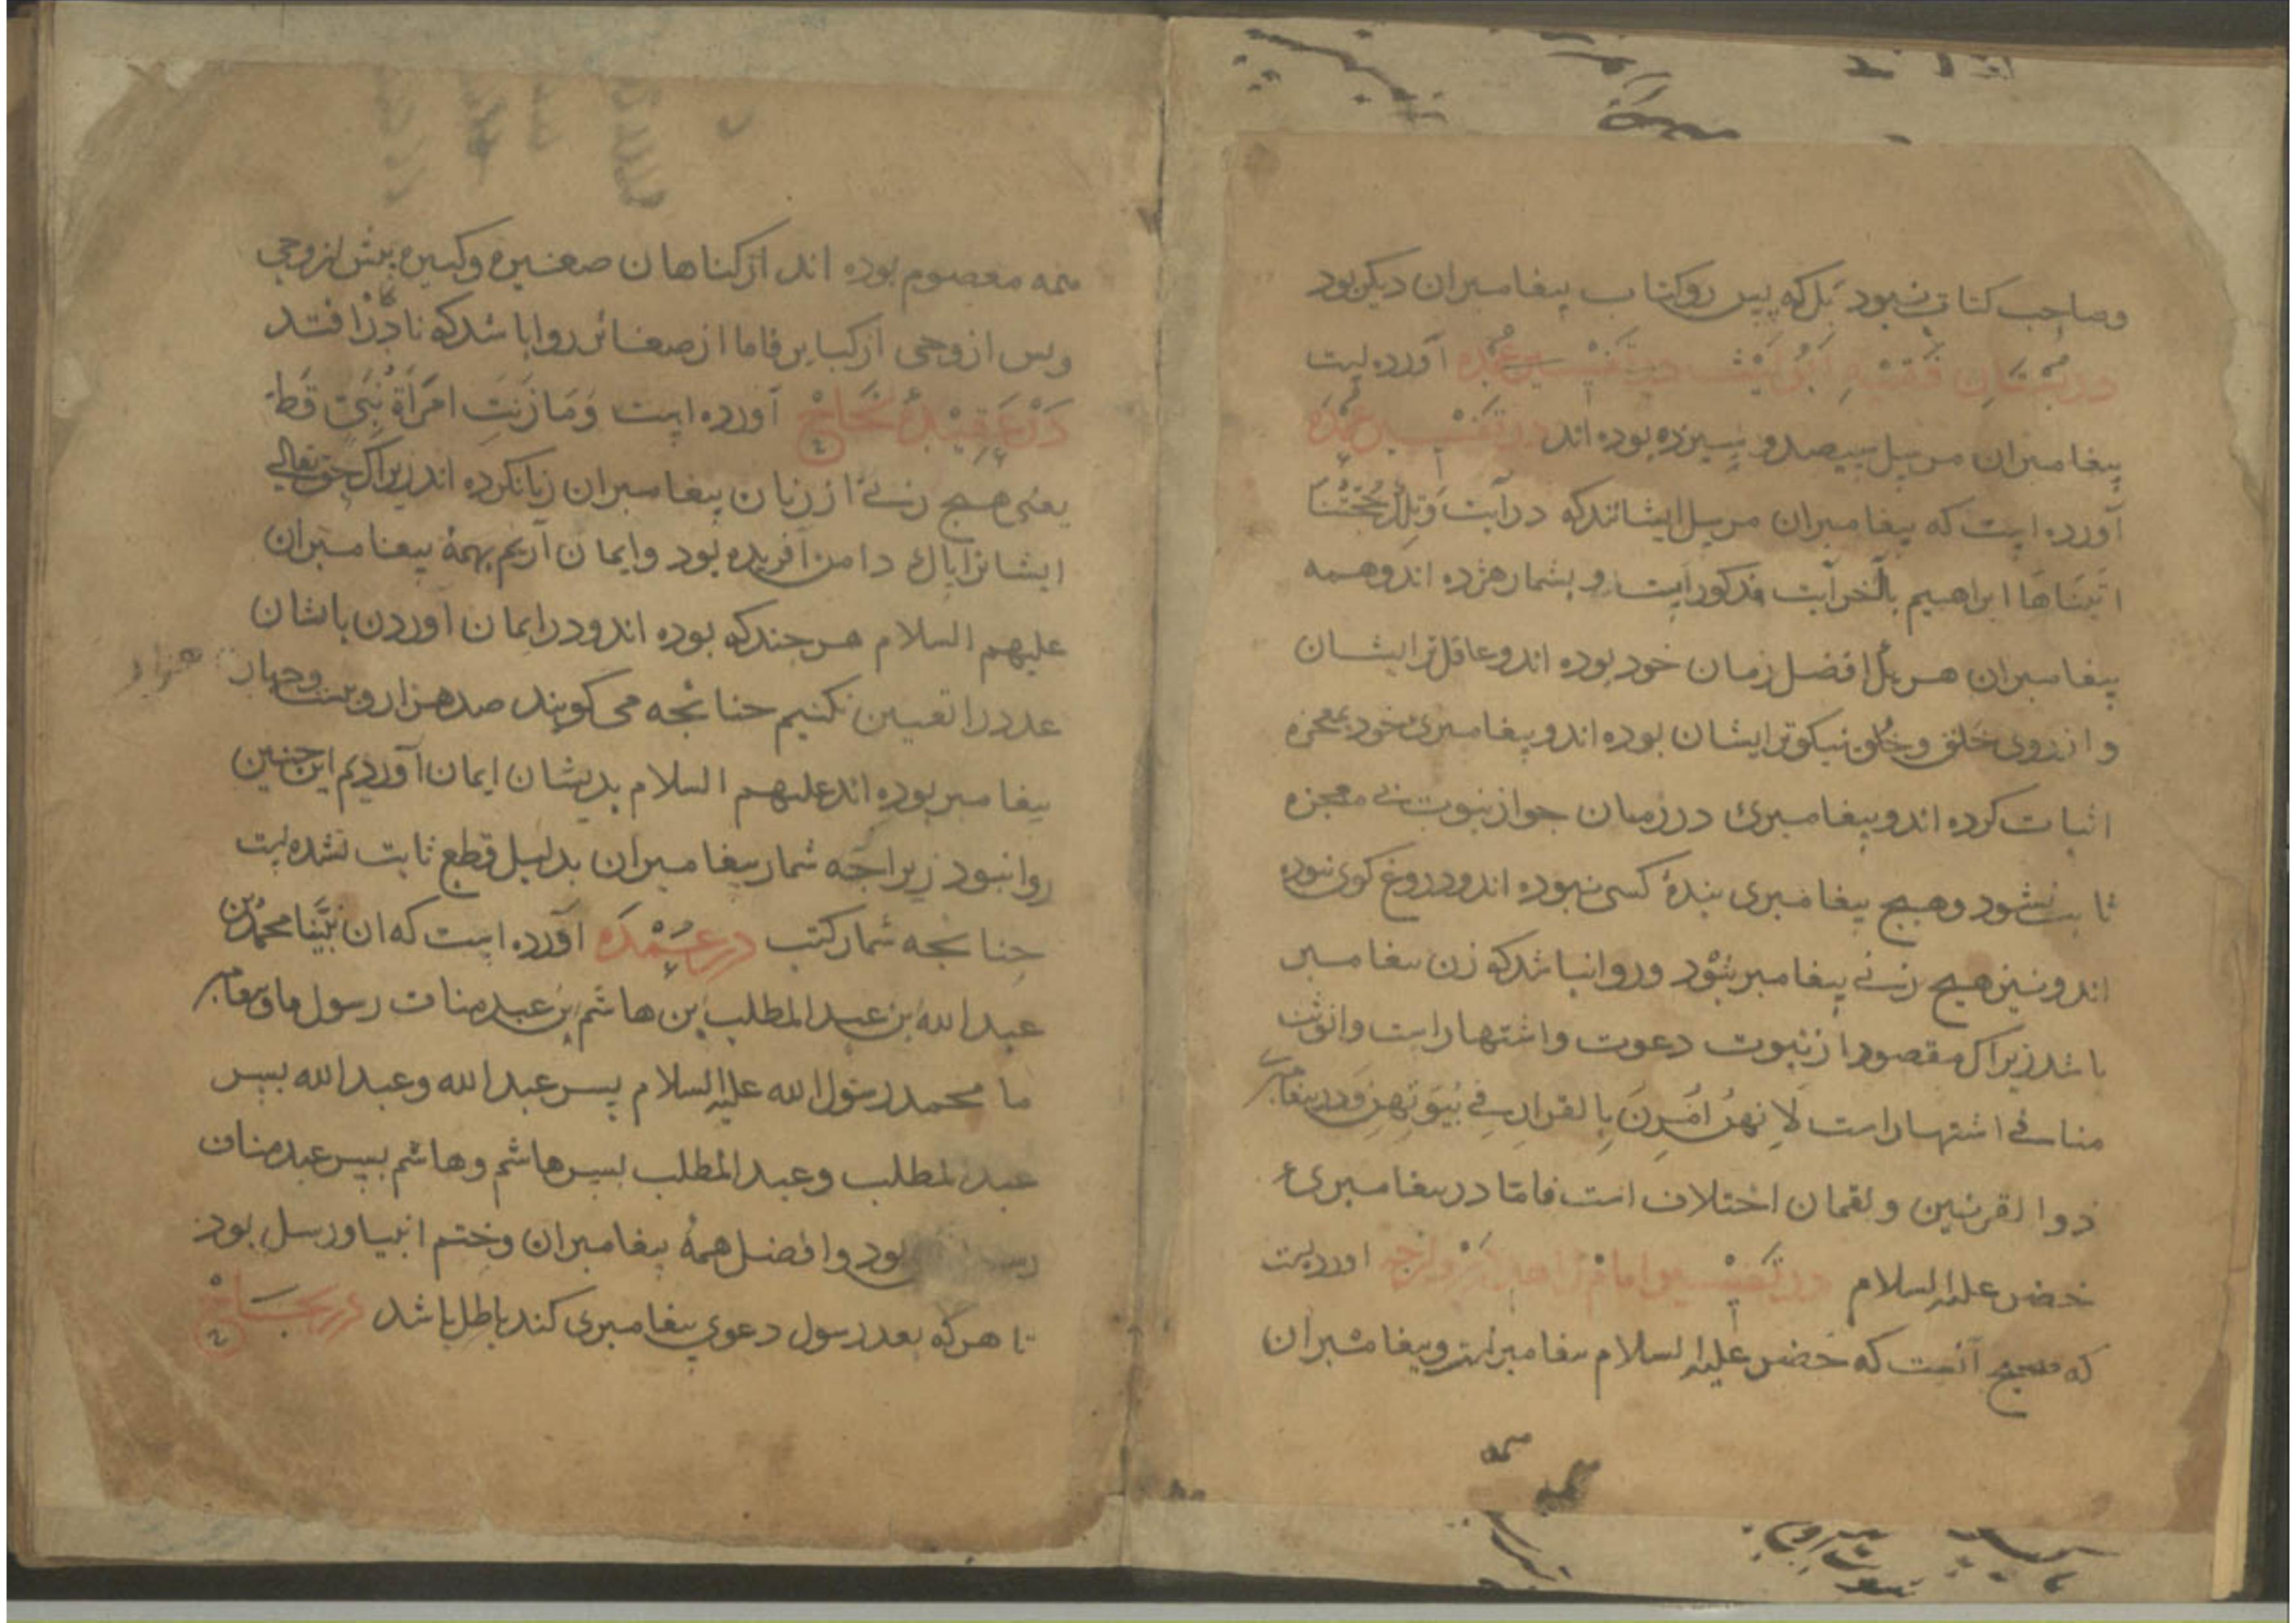 وصاحب کتاب نبود بل که پس رو کتاب پیغامبران دیکر بود
در بستان فقیه ابو لیث در تفسیر عمده آورده است
پیغامبران مرسل سیصد و سیزده بوده اند در تفسیر عمده
آورده است که پیغامبران مرسل ایشانند که در آیت وَتِلْكَ حُجَّتُنَا
اتَینَاهَا ابراهیم بآخر آیت مذکور است و بشمار هژده اند و همه
پیغامبران هر یک افضل زمان خود بوده اند و عاقل تر ایشان
و از روی خَلق و خُلق نیکوتر ایشان بوده اند و پیغامبرئ خود بمعجزه
اثبات کرده اند و پیغامبرئ در زمان جواز نبوت بی معجزه
ثابت نشود و هیچ پیغامبری بندۀ کسی نبوده اند و دروغ کوی نبوده
اند و نیز هیچ زنی پیغامبر نبود و روا نباشد که زن پیغامبر
باشد زیراک مقصود از نبوت دعوت و اشتهار است و انوثت
منافی اشتهار است لِاَنهنَّ اُمِرنَ بِالقرارِ فِی بُیوتِهنّ و در پیغامبرئ
ذو القرنین و لقمان اختلاف است فاما در پیغامبرئ
خضر علیه السلام در تفسیر امام زاهد اوردست
که صحیح آنست که خضر علیه السلام پیغامبر است و پیغامبران
همه معصوم بوده اند از کناهان صغیره و کبیره پیش از وحی
وپس از وحی از کبایر فاما از صغائر روا باشد که نادرًا افتد
دَرْ عَقِیْدۀ نَجَاحْ آورده است وَمَا زَنَتِ امْرَاَةُ نَبِیٍّ قَطّ
یعنی هیچ زنئ از زنان پیغامبران زنا نکرده اند زیراک حق تعالی
ایشانرا پاك دامن آفریده بود و ایمان آریم بهمۀ پیغامبران
علیهم السلام هر چند که بوده اند و در ایمان آوردن باشان
عدد را تعیین نکنیم چنانچه می کویند صد هزار و بیست و چهار هزار
پیغامبر بوده اند علیهم السلام بدیشان ایمان آوردیم این چنین
روا نبود زیراچه شمار پیغامبران بدلیل قطع ثابت نشده است
چنانچه شمار کتب در عمده آورده است که ان نَبیَّنا محمّد بن
عبد الله بن عبد المطلب بن هاشم بن عبد مناف رسول ما و پیغامبر
ما محمد رسول الله علیه السلام پسر عبد الله و عبد الله پسر
عبد المطلب و عبد المطلب پسر هاشم و هاشم پسر عبد مناف
بود و افضل همۀ پیغامبران و ختم انبیا و رسل بود
تا هر که بعد رسول دعوی پیغامبری کند باطل باشد در نجاح